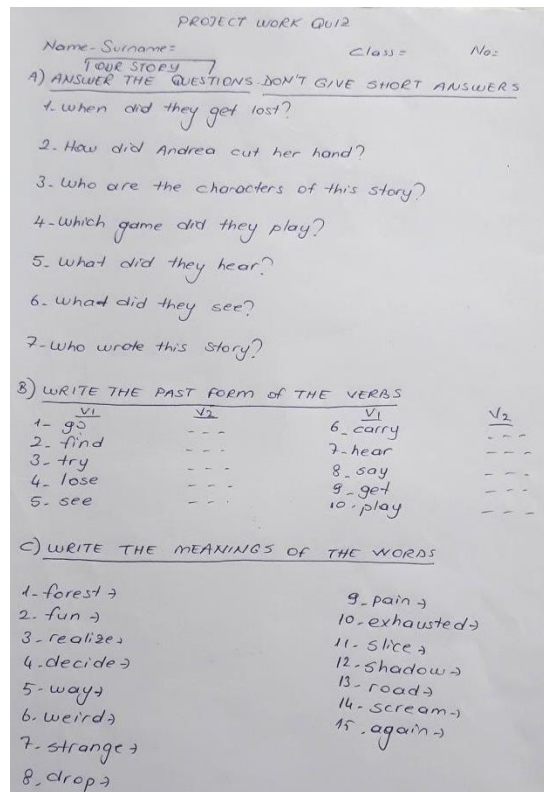 PROJECT WORK QUIZ
Name-Surname= Class= No=
OUR STORY
A) ANSWER THE QUESTIONS DON'T GIVE SHORT ANSWERS
1. when did they get lost?
2. How did Andrea cut her hand?
3. Who are the characters of this story?
4-Which game did they play?
5. What did they hear?
6. what did they see?
7-Who wrote this story?
B) WRITE THE PAST FORM of THE VERBS
V1 V2 V1 V2
1- go - - - 6. carry - - -
2. find - - - 7-hear - - -
3- try - - - 8. say - - -
4. lose - - - 9-get - - -
5. see - - - 10.play - - -
C) WRITE THE MEANINGS OF THE WORDS
1-forest → 9. pain →
2. fun → 10.exhausted →
3-realize → 11. slice →
4.decide → 12.shadow →
5-way → 13-road →
6. weird → 14-scream →
7. strange → 15.again →
8. drop →